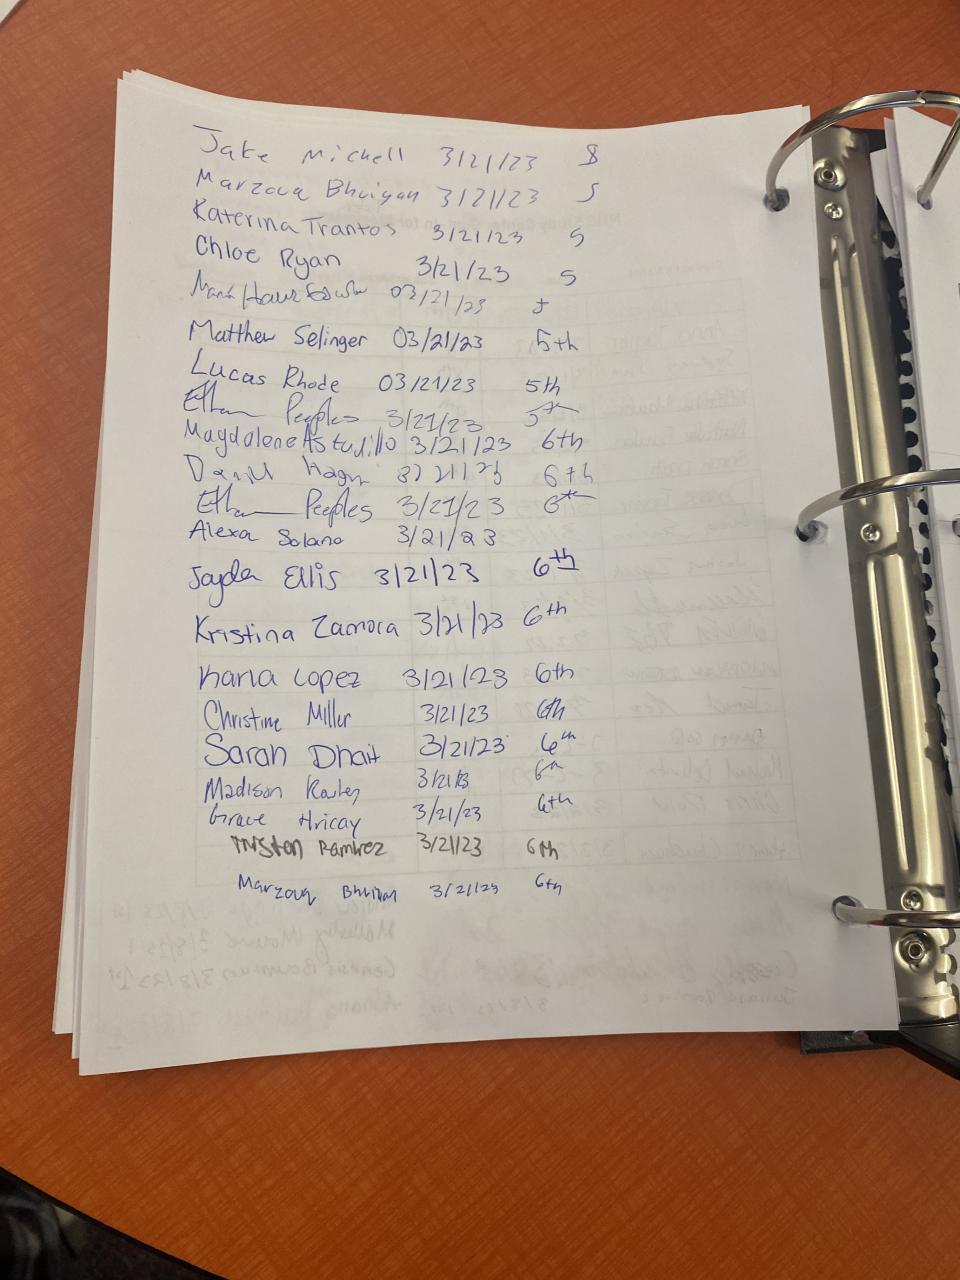 Jake Michell 3/21/23 8
Marzouq Bhuiyan 3/21/23 5
Katerina Trantos 3/21/23 5
Chloe Ryan 3/21/23 5
03/21/23
Matthew Selinger 03/21/23 5th
Lucas Rhode 03/21/23 5th
Ethan Peeples 3/21/23 5th
Magdalene Astudillo 3/21/23 6th
3/21/23 6th
Ethan Peeples 3/21/23 6th
Alexa Solano 3/21/23
Jayda Ellis 3/21/23 6th
Kristina Zamora 3/21/23 6th
Kana Lopez 3/21/23 6th
Christine Miller 3/21/23 6th
Sarah Dhait 3/21/23 6th
Madison 6th
Grace Hricay 3/21/23 6th
Tristen Ramirez 3/21/23 6th
Marzouq Bhuiyan 3/21/23 6th